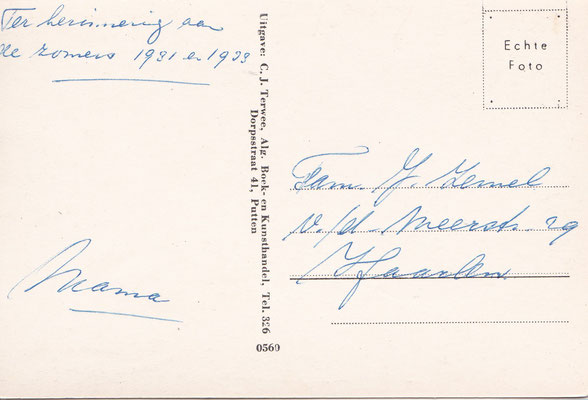 Ter herinnering aan
de zomers 1931 en 1933
Mama
Uitgave: C. J. Terwee, Alg. Boek- en Kunsthandel, Tel. 326
Dorpsstraat 41, Putten
0560
Echte
Foto
Fam. J. Zemel
v/d Meerstr. 29
Haarlem